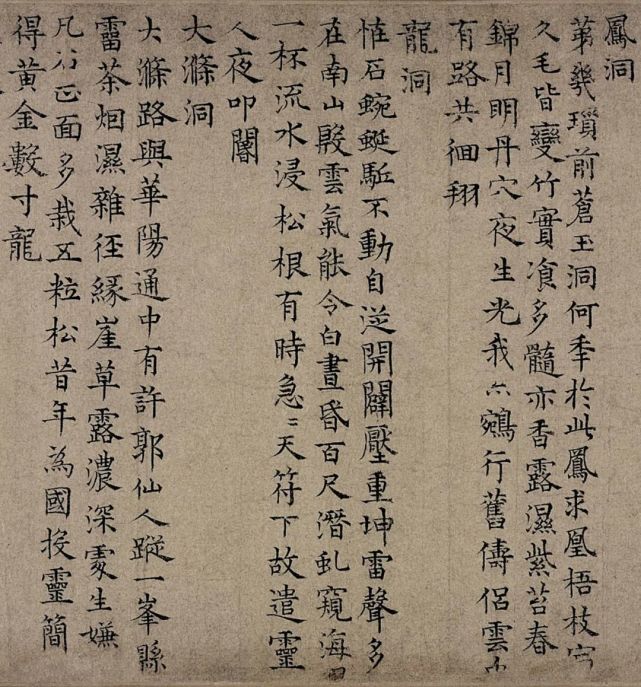 鳳洞
第幾瑣前蒼玉洞何年於此鳳求凰梧枝
久毛皆變竹實飡多髓亦香露濕紫苔春
錦月明丹穴夜生光我亦鵷行舊儔侶雲山
有路共徊翔
龍洞
怪石蜿蜒駈不動自從開闢壓重坤雷聲多
在南山殷雲氣能令白晝昏百尺潛虬窺海
一杯流水浸松根有時急〻天符下故遣靈
人夜叩閽
大滌洞
大滌路與華陽通中有許郭仙人蹤一峯縣
霤茶烟濕雜徑緣崖草露濃深處生嫌
凡石正面多栽五粒松昔年為國投靈簡
得黃金數寸龍